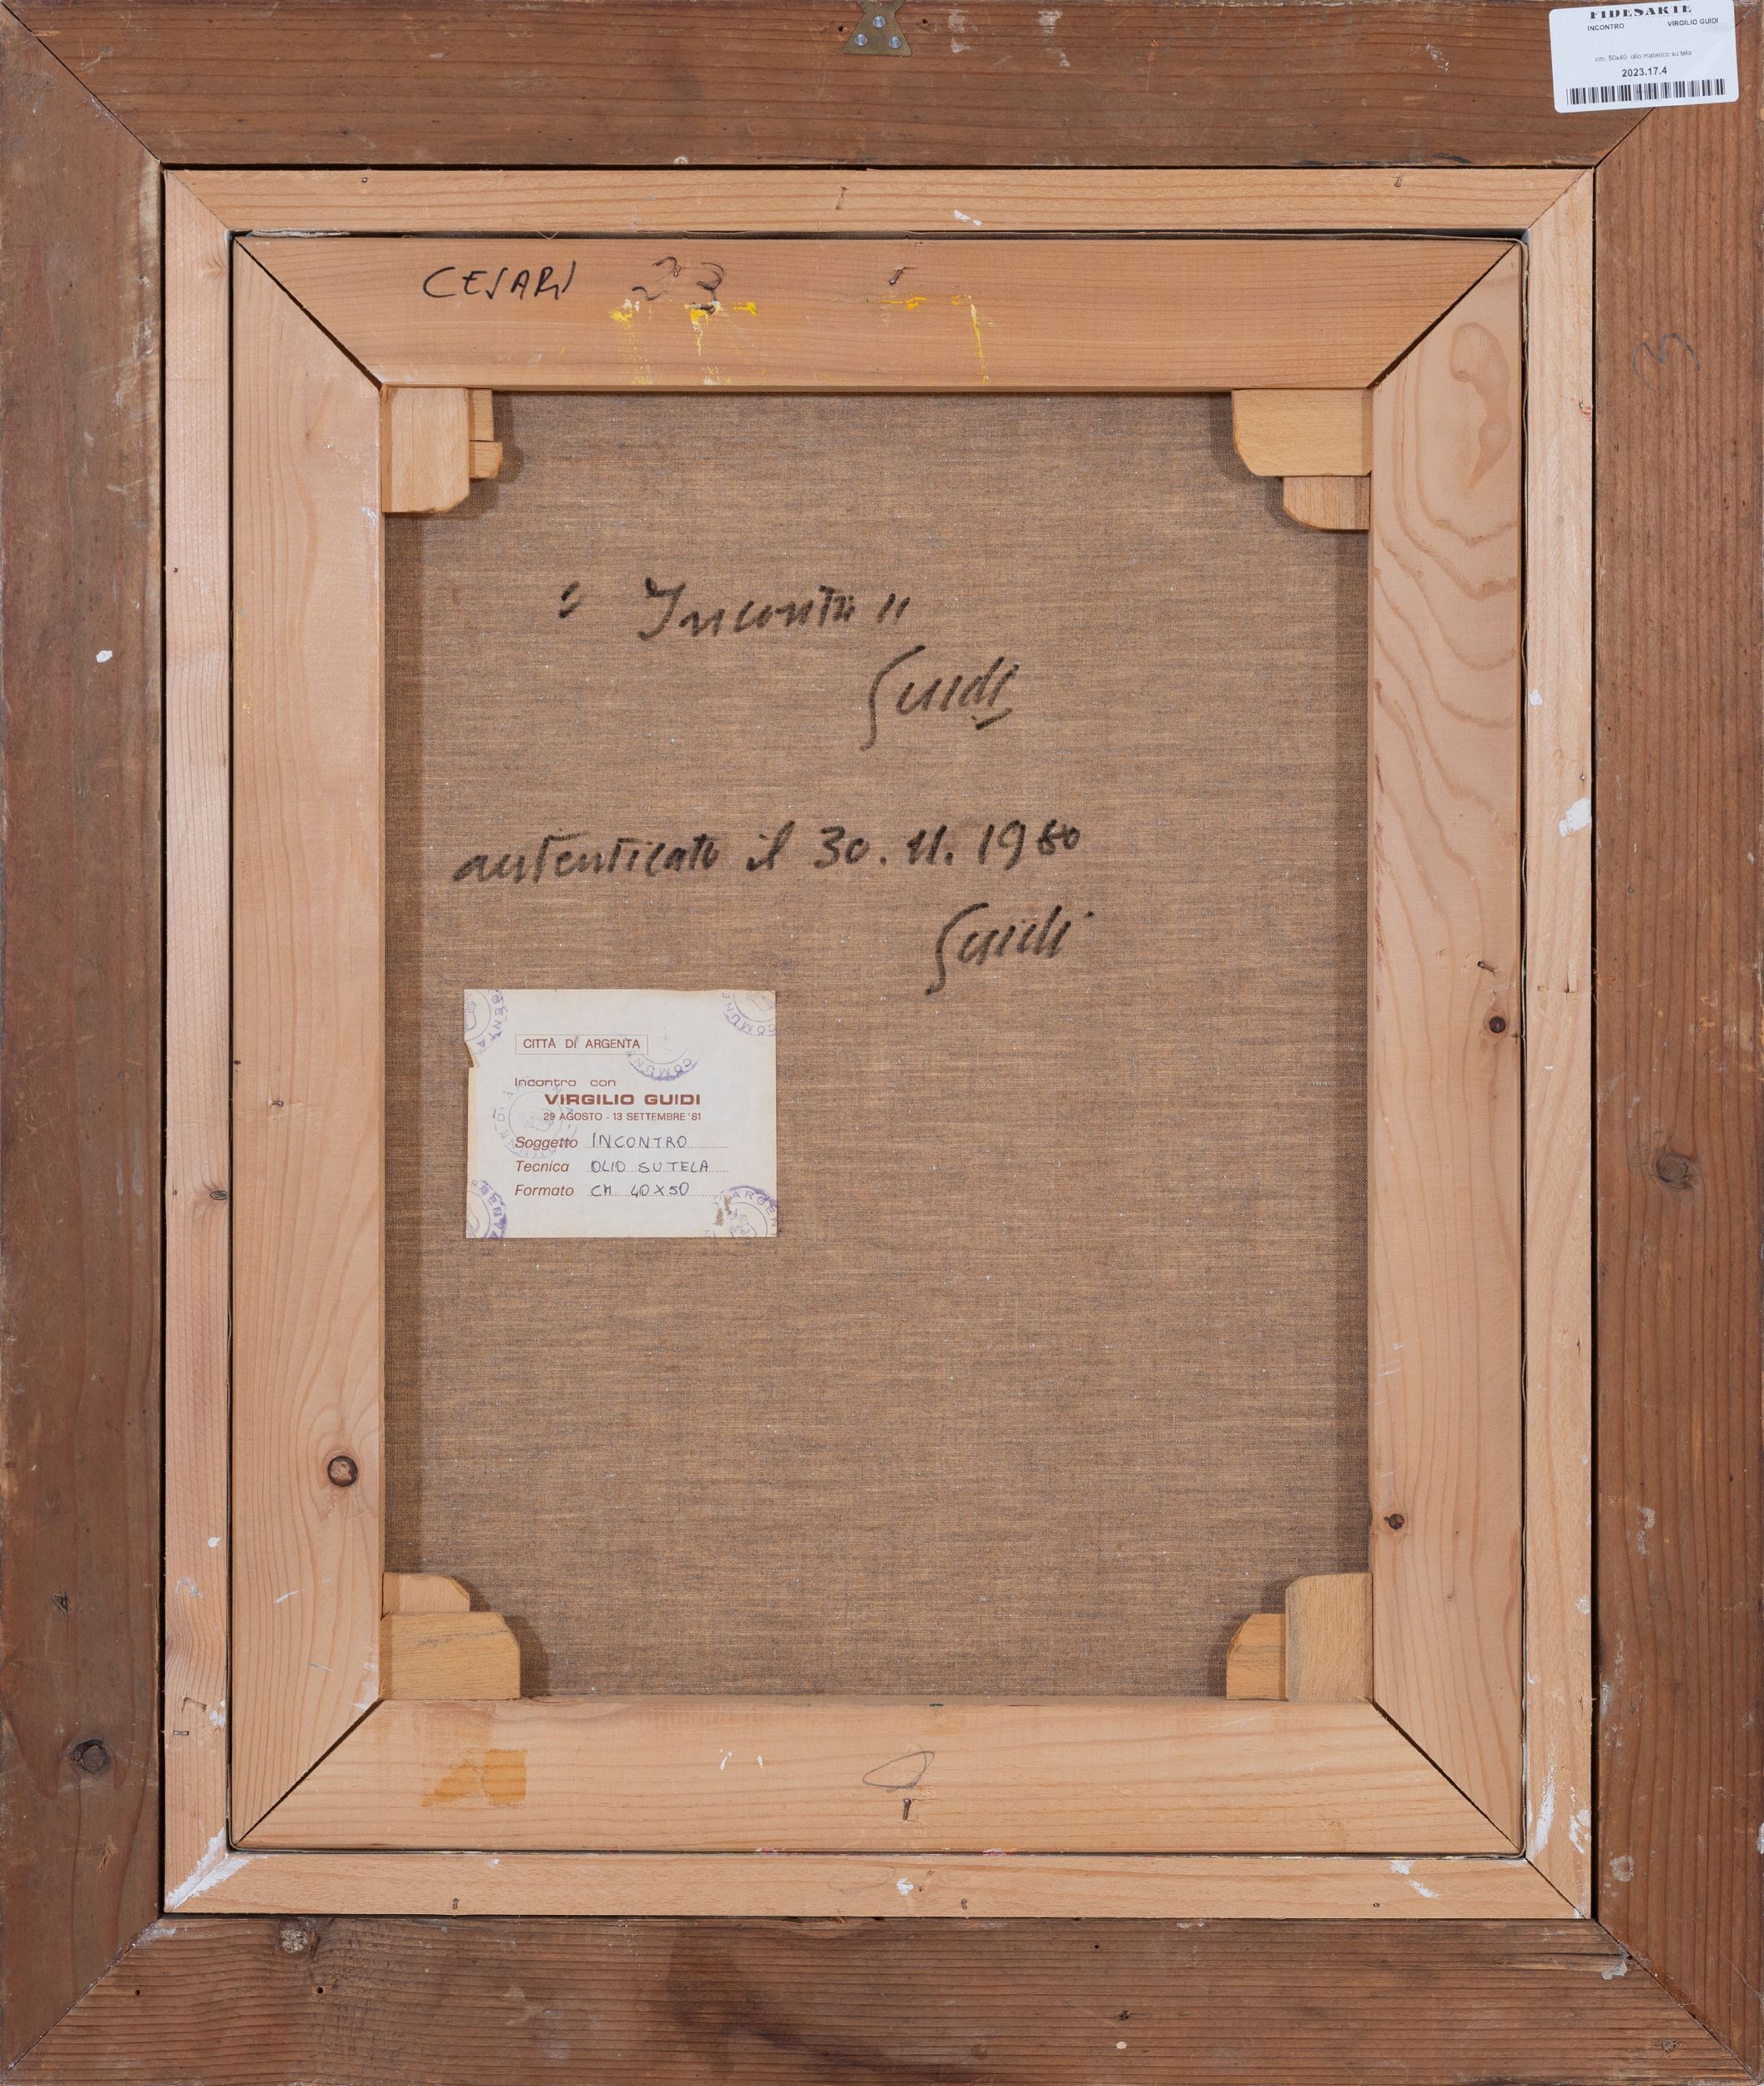 FIDESARTE
INCONTRO VIRGILIO GUIDI
cm. 50x40 olio materico su tela
2023.17.4
CESARI 23
3
"Incontro"
Guidi
autenticato il 30.11.1980
Guidi
CITTÀ DI ARGENTA
Incontro con
VIRGILIO GUIDI
29 AGOSTO - 13 SETTEMBRE '81
Soggetto INCONTRO
Tecnica OLIO SU TELA
Formato CM. 40X50